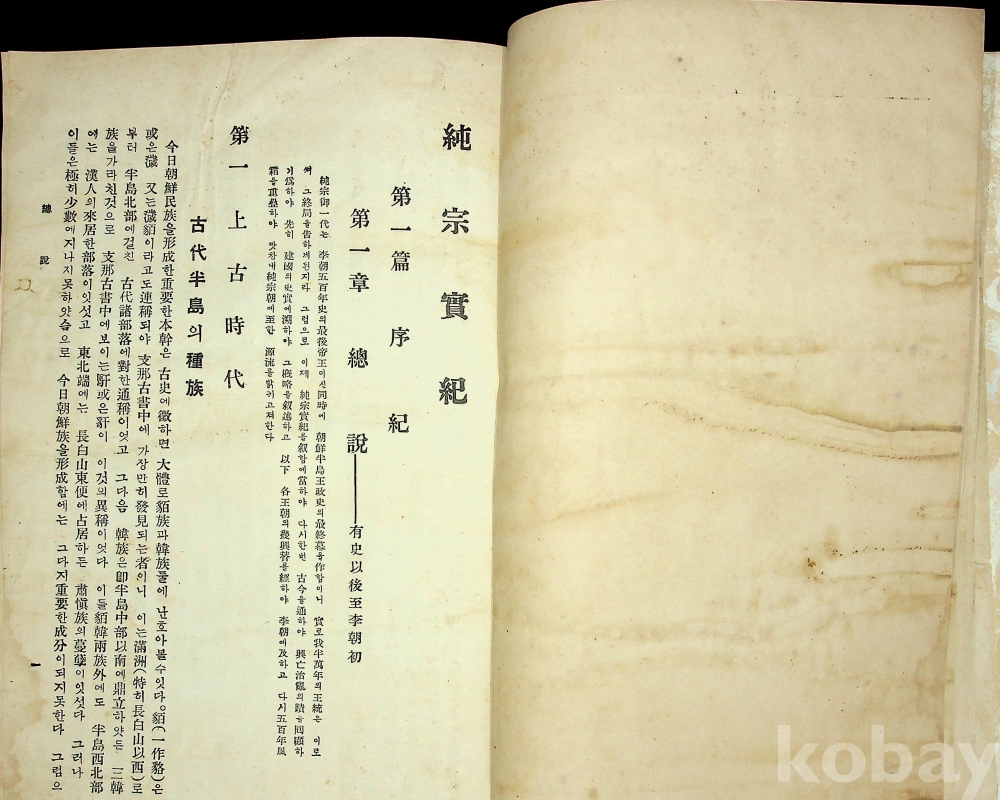 純宗實紀
第一篇 序紀
第一章 總說――有史以後至李朝初
純宗御一代는 李朝五百年史의最後帝王이신同時에 朝鮮半島王政史의最終幕을作함이니 實로我半萬年의王統은 이로
써 그終局을告하게된지라 그럼으로 이제 純宗實紀를叙함에當하야 다시한번 古今을通하야 興亡治亂의蹟을回顧하
기爲하야 先히 建國의史實에溯하야 그槪略을叙述하고 以下 各王朝의幾興替를經하야 李朝에及하고 다시五百年風
霜을重疊하야 맛참내純宗朝에至한 源流를밝키고저한다
第一 上古時代
古代半島의種族
今日朝鮮民族을形成한重要한本幹은 古史에徵하면 大體로貊族과韓族둘에 난호아볼수잇다。貊(一作貉)은
或은濊 又는濊貊이라고도連稱되야 支那古書中에 가장만히發見되는者이니 이는滿洲(特히長白山以西)로
부터 半島北部에걸친 古代諸部落에對한通稱이엇고 그다음 韓族은卽半島中部以南에鼎立하얏든 三韓
族을가라친것으로 支那古書中에보이는馯或은豻이 이것의異稱이엇다 이들貊韓兩族外에도 半島西北部
에는 漢人의來居한部落이잇섯고 東北端에는 長白山東便에占居하든 肅愼族의蔓孽이잇섯다 그러나
이들은極히少數에지나지못하얏슴으로 今日朝鮮族을形成함에는 그다지重要한成分이되지못한다 그럼으
總說
一
kobay